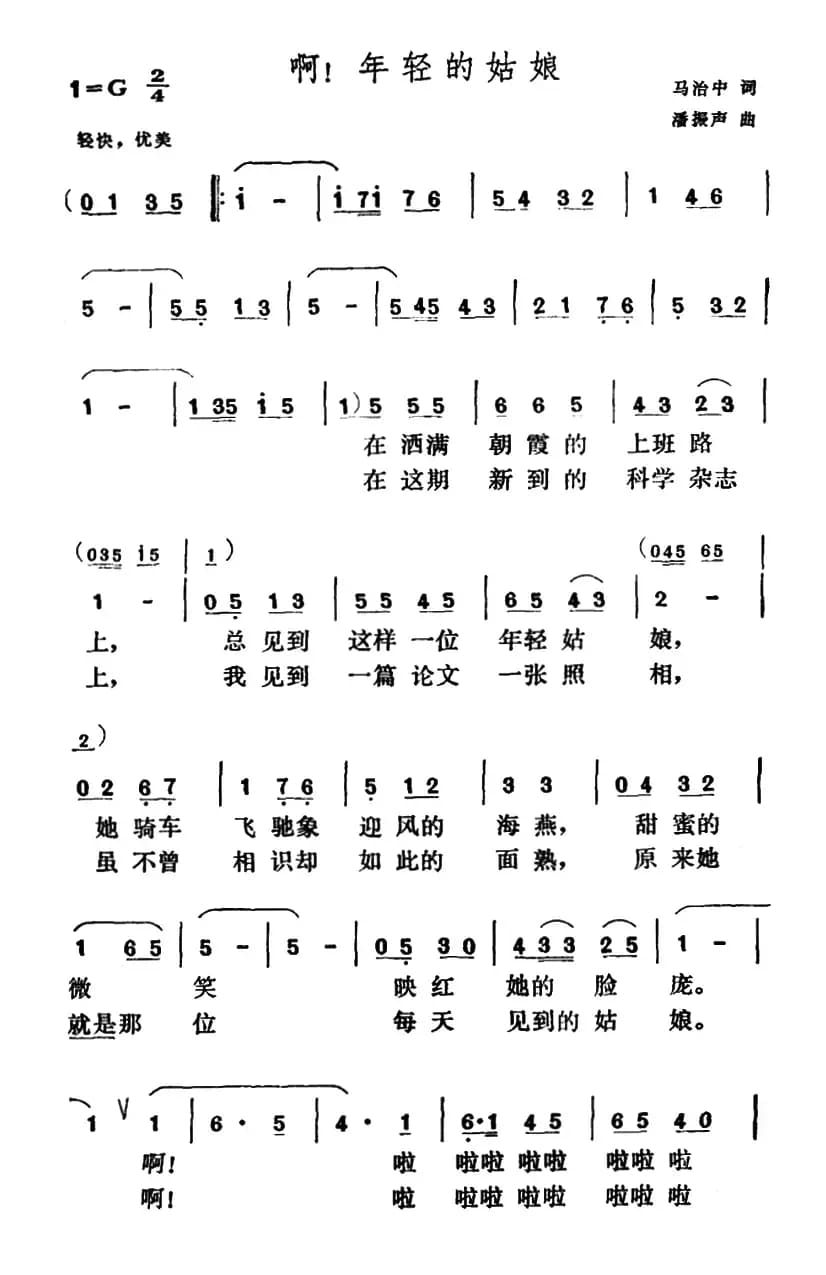 啊！年轻的姑娘
1=G 2/4
马治中 词
潘振声 曲
轻快，优美
(0 1 3 5 ‖: i - | i 7 i 7 6 | 5 4 3 2 | 1 4 6 |
5 - | 5 5 1 3 | 5 - | 5 4 5 4 3 | 2 1 7 6 | 5 3 2 |
1 - | 1 3 5 i 5 | 1) 5 5 5 | 6 6 5 | 4 3 2 3 |
在 洒满 朝 霞 的 上班 路
在 这期 新 到 的 科学 杂志
(0 3 5 i 5 | 1) (0 4 5 6 5 |
1 - | 0 5 1 3 | 5 5 4 5 | 6 5 4 3 | 2 - |
上， 总 见到 这样 一位 年轻 姑 娘，
上， 我 见到 一篇 论文 一张 照 相，
2)
0 2 6 7 | 1 7 6 | 5 1 2 | 3 3 | 0 4 3 2 |
她 骑车 飞 驰象 迎 风的 海 燕， 甜 蜜的
虽 不曾 相 识却 如 此的 面 熟， 原 来她
1 6 5 | 5 - | 5 - | 0 5 3 0 | 4 3 3 2 5 | 1 -
微 笑 映 红 她的 脸 庞。
就是那 位 每 天 见到的 姑 娘。
1 V 1 | 6 · 5 | 4 · 1 | 6 · 1 4 5 | 6 5 4 0 |
啊！ 啦 啦啦 啦啦 啦啦 啦
啊！ 啦 啦啦 啦啦 啦啦 啦